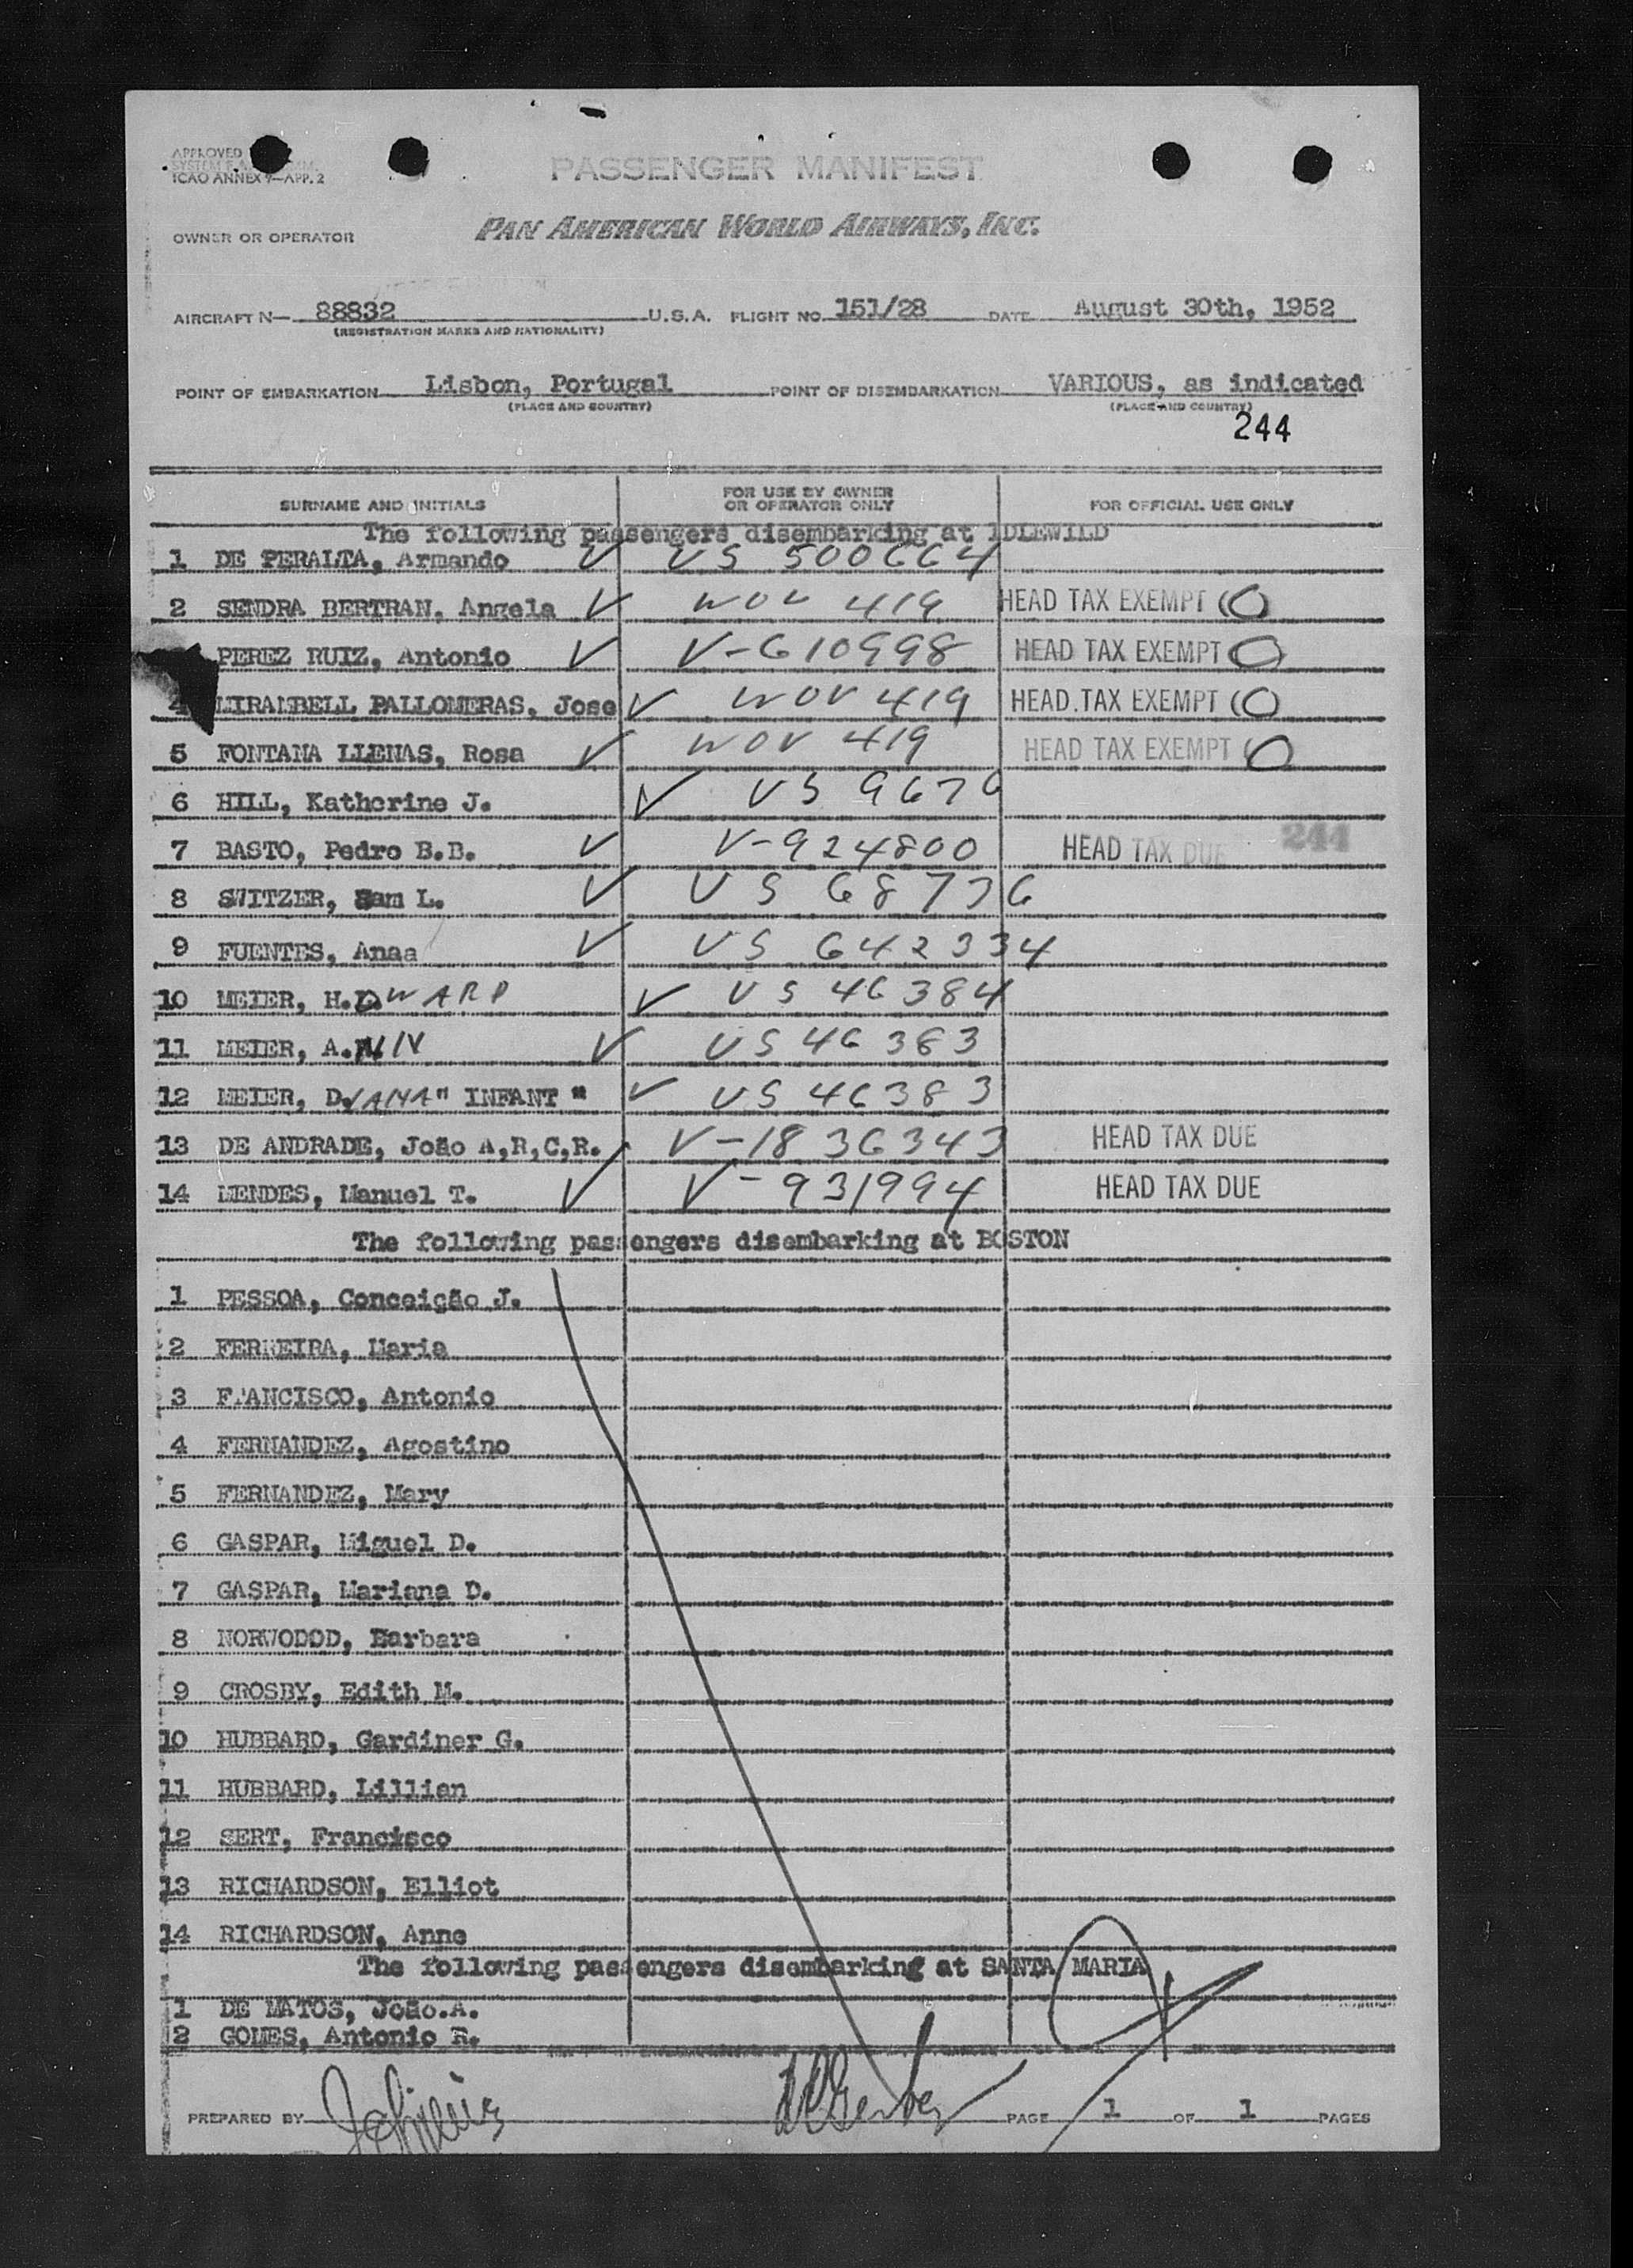 APPROVED
ICAO ANNEX 9—APP. 2
PASSENGER MANIFEST
OWNER OR OPERATOR PAN AMERICAN WORLD AIRWAYS, INC.
AIRCRAFT N— 88832 U.S.A. FLIGHT NO. 151/28 DATE August 30th, 1952
(REGISTRATION MARKS AND NATIONALITY)
POINT OF EMBARKATION Lisbon, Portugal POINT OF DISEMBARKATION VARIOUS, as indicated
(PLACE AND COUNTRY) (PLACE AND COUNTRY)
244
SURNAME AND INITIALS FOR USE BY OWNER OR OPERATOR ONLY FOR OFFICIAL USE ONLY
The following passengers disembarking at IDLEWILD
1 DE PERALTA, Armando V US 500664
2 SENDRA BERTRAN, Angela V WOV 419 HEAD TAX EXEMPT (O
PEREZ RUIZ, Antonio V V-610998 HEAD TAX EXEMPT O
4 MIRAMBELL PALLOMERAS, Jose V WOV 419 HEAD TAX EXEMPT (O
5 FONTANA LLENAS, Rosa V WOV 419 HEAD TAX EXEMPT (O
6 HILL, Katherine J. V US 9676
7 BASTO, Pedro B.B. V V-924800 HEAD TAX DUE 244
8 SWITZER, Sam L. V US 68736
9 FUENTES, Anaa V US 642334
10 MEIER, H. EDWARD V US 46384
11 MEIER, A. V US 46383
12 MEIER, DIANA " INFANT " V US 46383
13 DE ANDRADE, João A,R,C,R. V-1836343 HEAD TAX DUE
14 MENDES, Manuel T. V V-931994 HEAD TAX DUE
The following passengers disembarking at BOSTON
1 PESSOA, Conceição J.
2 FERREIRA, Maria
3 FRANCISCO, Antonio
4 FERNANDEZ, Agostino
5 FERNANDEZ, Mary
6 GASPAR, Miguel D.
7 GASPAR, Mariana D.
8 NORWODOD, Barbara
9 CROSBY, Edith M.
10 HUBBARD, Gardiner G.
11 HUBBARD, Lillian
12 SERT, Francisco
13 RICHARDSON, Elliot
14 RICHARDSON, Anne
The following passengers disembarking at SANTA MARIA
1 DE MATOS, João.A.
2 GOMES, Antonio R.
PREPARED BY PAGE 1 OF 1 PAGES